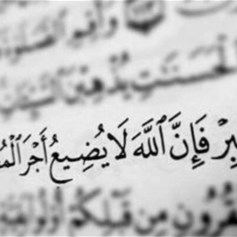 وَأَقِمِ ٱلصَّلَوٰةَ
ٱلْحَسَنَٰتِ يُذْهِبْنَ ٱلسَّيِّـَٔاتِ
بِرْ فَإِنَّ ٱللَّهَ لَا يُضِيعُ أَجْرَ ٱلْمُ
قُرُونِ مِن قَبْلِكُمْ أُو۟لُوا۟